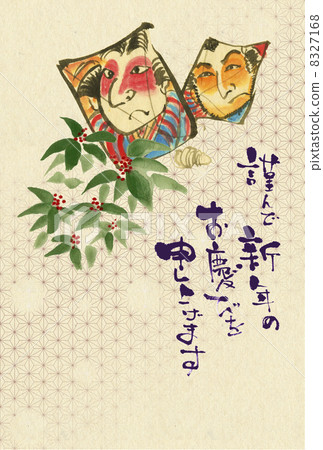 謹んで新年の
お慶びを
申し上げます
PIXTA
8327168